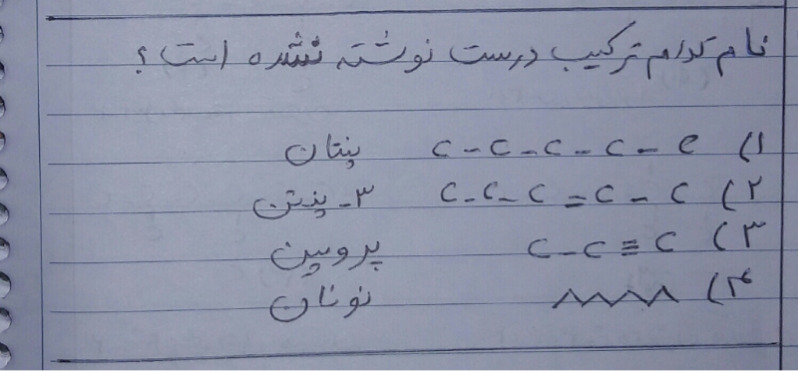 نام کدام ترکیب درست نوشته نشده است؟
۱) C - C - C - C - C پنتان
۲) C - C - C = C - C ۳- پنتن
۳) C - C ≡ C پروپین
۴) نونان